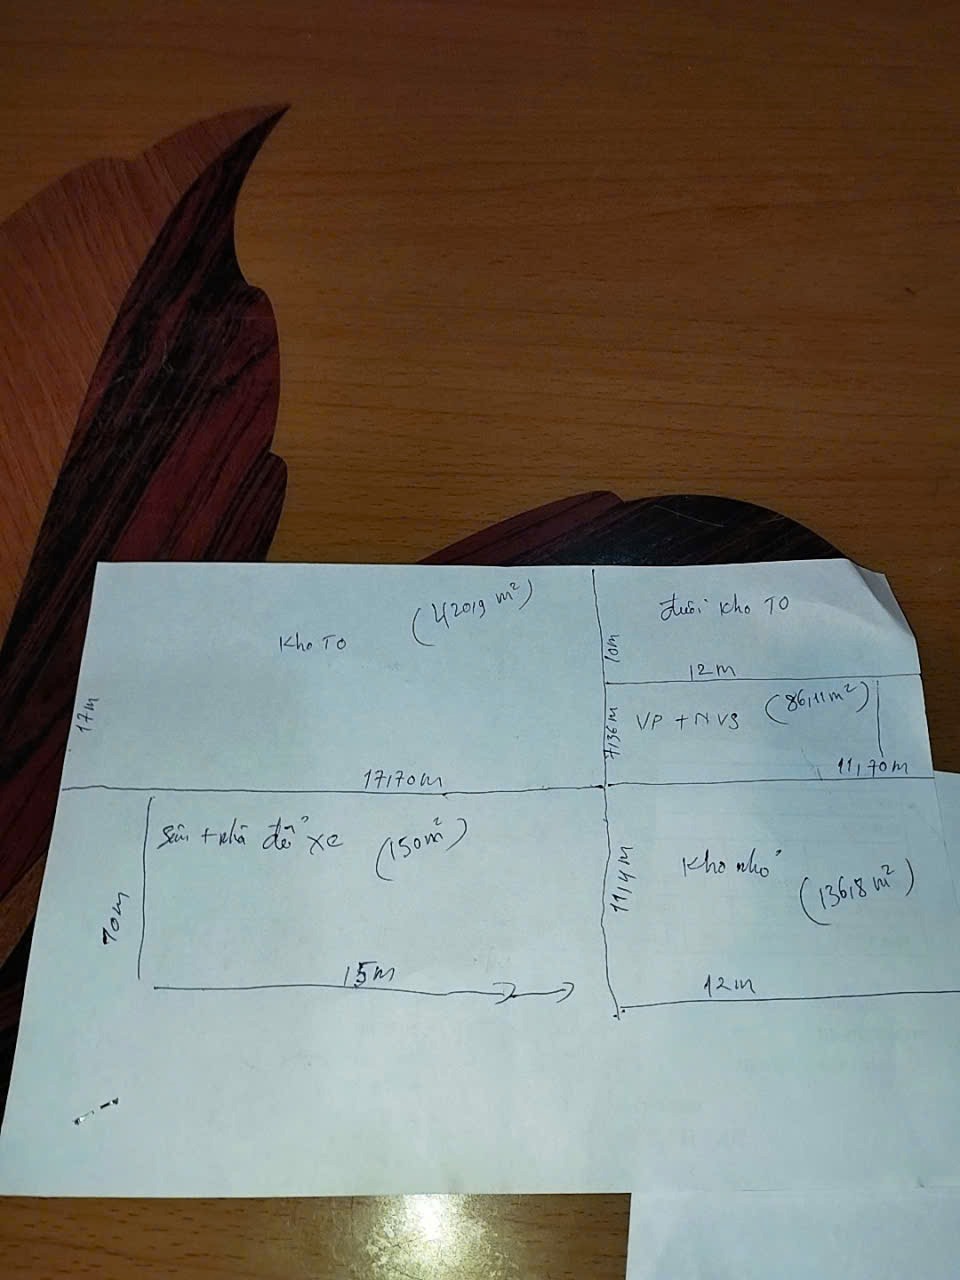 Kho TO
(420,9 m²)
17m
17,70m
đuôi kho TO
10m
12m
7,36m
VP + NVS
(86,11m²)
11,70m
Sân + nhà để xe
(150m²)
10m
15m
11,4m
Kho nhỏ
(136,8 m²)
12m